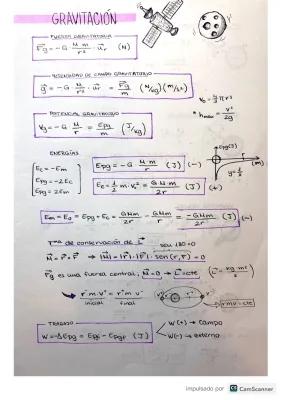 GRAVITACIÓN
FUERZA GRAVITATORIA
Fg = -G M·m/r² · ur (N)
INTENSIDAD DE CAMPO GRAVITATORIO
g = -G · M/r² · ur = Fg/m (N/kg) (m/s²)
V0 = 4/3 πr³
* hmax = v²/2g
POTENCIAL GRAVITATORIO
Vg = -G M/r = Epg/m (J/kg)
ENERGÍAS
Ec = -Em
Epg = -2Ec
Epg = 2Em
Epg = -G M·m/r (J) (-)
Ec = 1/2 m·v² = G M·m/2r (J) (+)
(m)
Em = E0 = Epg + Ec = GMm/2r - GMm/r = -GMm/2r (J) (-)
Tma de conservación de L
sen 180=0
M = r · F → |M| = |r|·|F| · sen(r,F) = 0
Fg es una fuerza central; M=0 → L=cte
r·m·v = r·m·v
inicial
final
rmv=cte
TRABAJO
W = -ΔEpg = Epi - Epgf (J)
W(+) → campo
W(-) → externo
impulsado por CS CamScanner